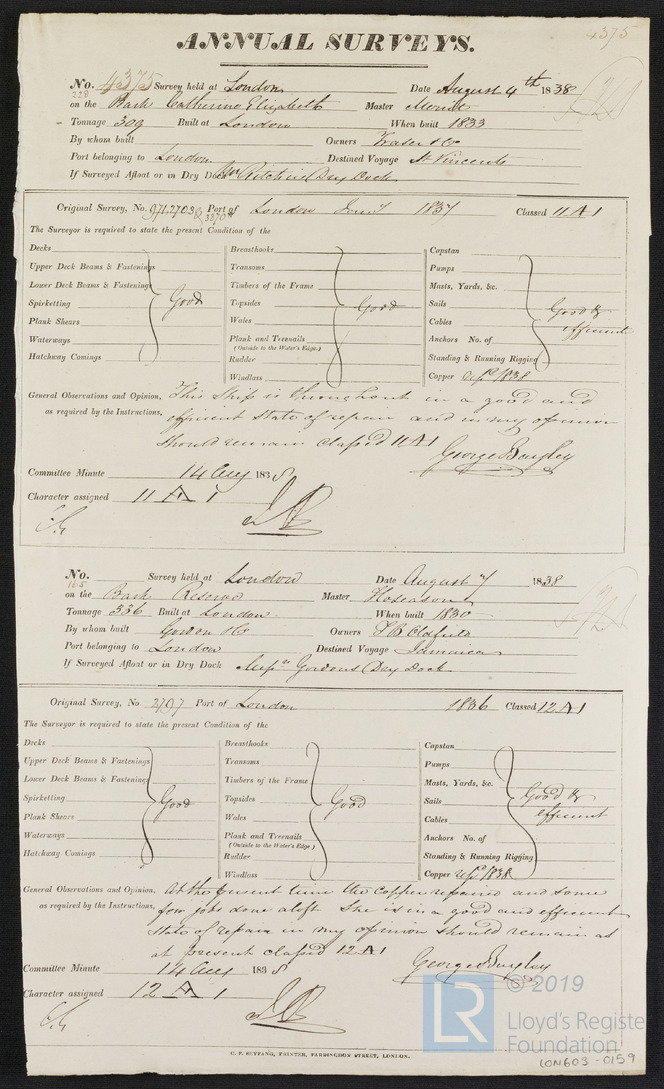 4375
ANNUAL SURVEYS.
No. 4375 Survey held at London Date August 4th 1838
228
on the Bark Catherine Elizabeth Master
Tonnage 309 Built at London When built 1833
By whom built Owners Fraser & Co
Port belonging to London Destined Voyage St Vincents
If Surveyed Afloat or in Dry Dock Ritchies Dry Dock
Original Survey, No. Port of London 1837 Classed 11 A 1
3870
The Surveyor is required to state the present Condition of the
Decks Breasthooks Capstan
Upper Deck Beams & Fastenings Transoms Pumps
Lower Deck Beams & Fastenings Timbers of the Frame Masts, Yards, &c.
Spirketting Good Topsides Good Sails Good &
Plank Shears Wales Cables efficient
Waterways Plank and Treenails Anchors No. of
(Outside to the Water's Edge.)
Hatchway Comings Rudder Standing & Running Rigging
Windlass Copper repd 1838
General Observations and Opinion, This Ship is throughout in a good and
as required by the Instructions, efficient state of repair and in my opinion
should remain classed 11 A 1
George Bayley
Committee Minute 14 Aug 1838
Character assigned 11 A 1
No. Survey held at London Date August 7 1838
165
on the Bark Reserve Master Hoseason
Tonnage 336 Built at London When built 1830
By whom built Gordon & Co Owners Oldfield
Port belonging to London Destined Voyage Jamaica
If Surveyed Afloat or in Dry Dock Gordons Dry Dock
Original Survey, No 2797 Port of London 1836 Classed 12 A 1
The Surveyor is required to state the present Condition of the
Decks Breasthooks Capstan
Upper Deck Beams & Fastenings Transoms Pumps
Lower Deck Beams & Fastening Timbers of the Frame Masts, Yards, &c.
Spirketting Good Topsides Good Sails Good &
Plank Shears Wales Cables efficient
Waterways Plank and Treenails Anchors No. of
(Outside to the Water's Edge)
Hatchway Comings Rudder Standing & Running Rigging
Windlass Copper repd 1838
General Observations and Opinion. At the present time the copper repaired and some
as required by the Instructions, few jobs done aloft She is in a good and efficient
state of repair in my opinion should remain as
at present classed 12 A 1
George Bayley
Committee Minute 14 Aug 1838
Character assigned 12 A 1
C. F. SEYFANG, PRINTER, FARRINGDON STREET, LONDON.
LR © 2019
Lloyd's Register
Foundation
LON603-0159